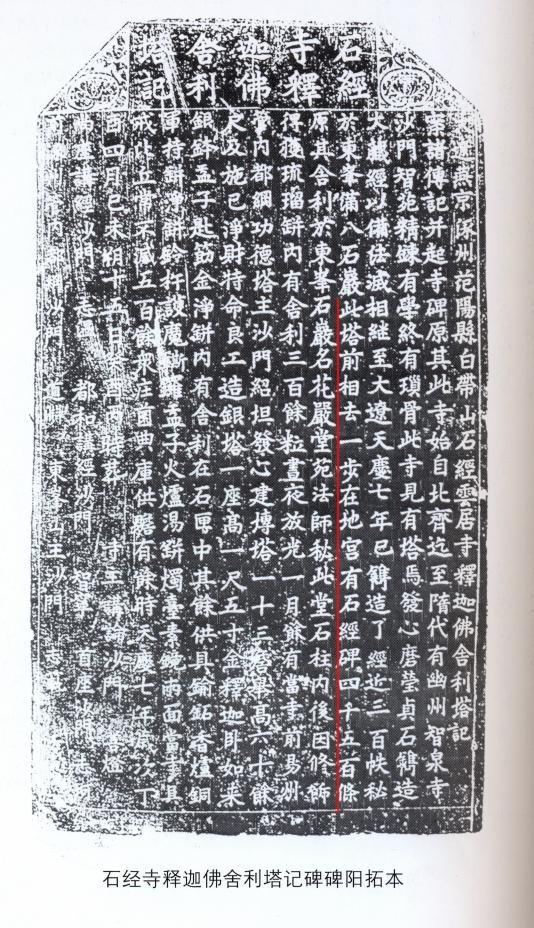 石經寺釋迦佛舍利塔記
遼燕京涿州范陽縣白帶山石經雲居寺釋迦佛舍利塔記
案諸傳記并起寺碑原其此寺始自北齊迄至隋代有幽州智泉寺
沙門智苑精鍊有學終有瑣骨此寺見有塔焉發心磨瑩貞石鐫造
大藏經以備法滅相継至大遼天慶七年已鐫造了經近三百帙秘
於東峯備八石巖此塔前相去一步在地宮有石經碑四千五百條
原其舍利於東峯石巖名花嚴堂苑法師秘此堂石柱内後因修飾
得獲琉璃缾内有舍利三百餘粒晝夜放光一月餘有當寺前易州
管内都綱功德塔主沙門紹坦發心建塼塔一十三簷舉高六十餘
尺及施己淨財特命良工造銀塔一座高一尺五寸金釋迦耶如来
銀鉢盂子匙筯金淨缾内有舍利在石匣中其餘供具鍮鉐香爐銅
軍持缾淨缾鈴杵護魔羅盂子火爐湯缾燭臺素鏡兩面當寺具
戒比丘常不減五百餘衆庄園典庫供贍有餘時天慶七年歲次丁
酉四月己未朔十五日癸酉丙時葬 寺主講論沙門 善燈
講經沙門 志通 都和講經沙門 智 首座沙門 志
沙門 道 東 主沙門 志
石经寺释迦佛舍利塔记碑碑阳拓本